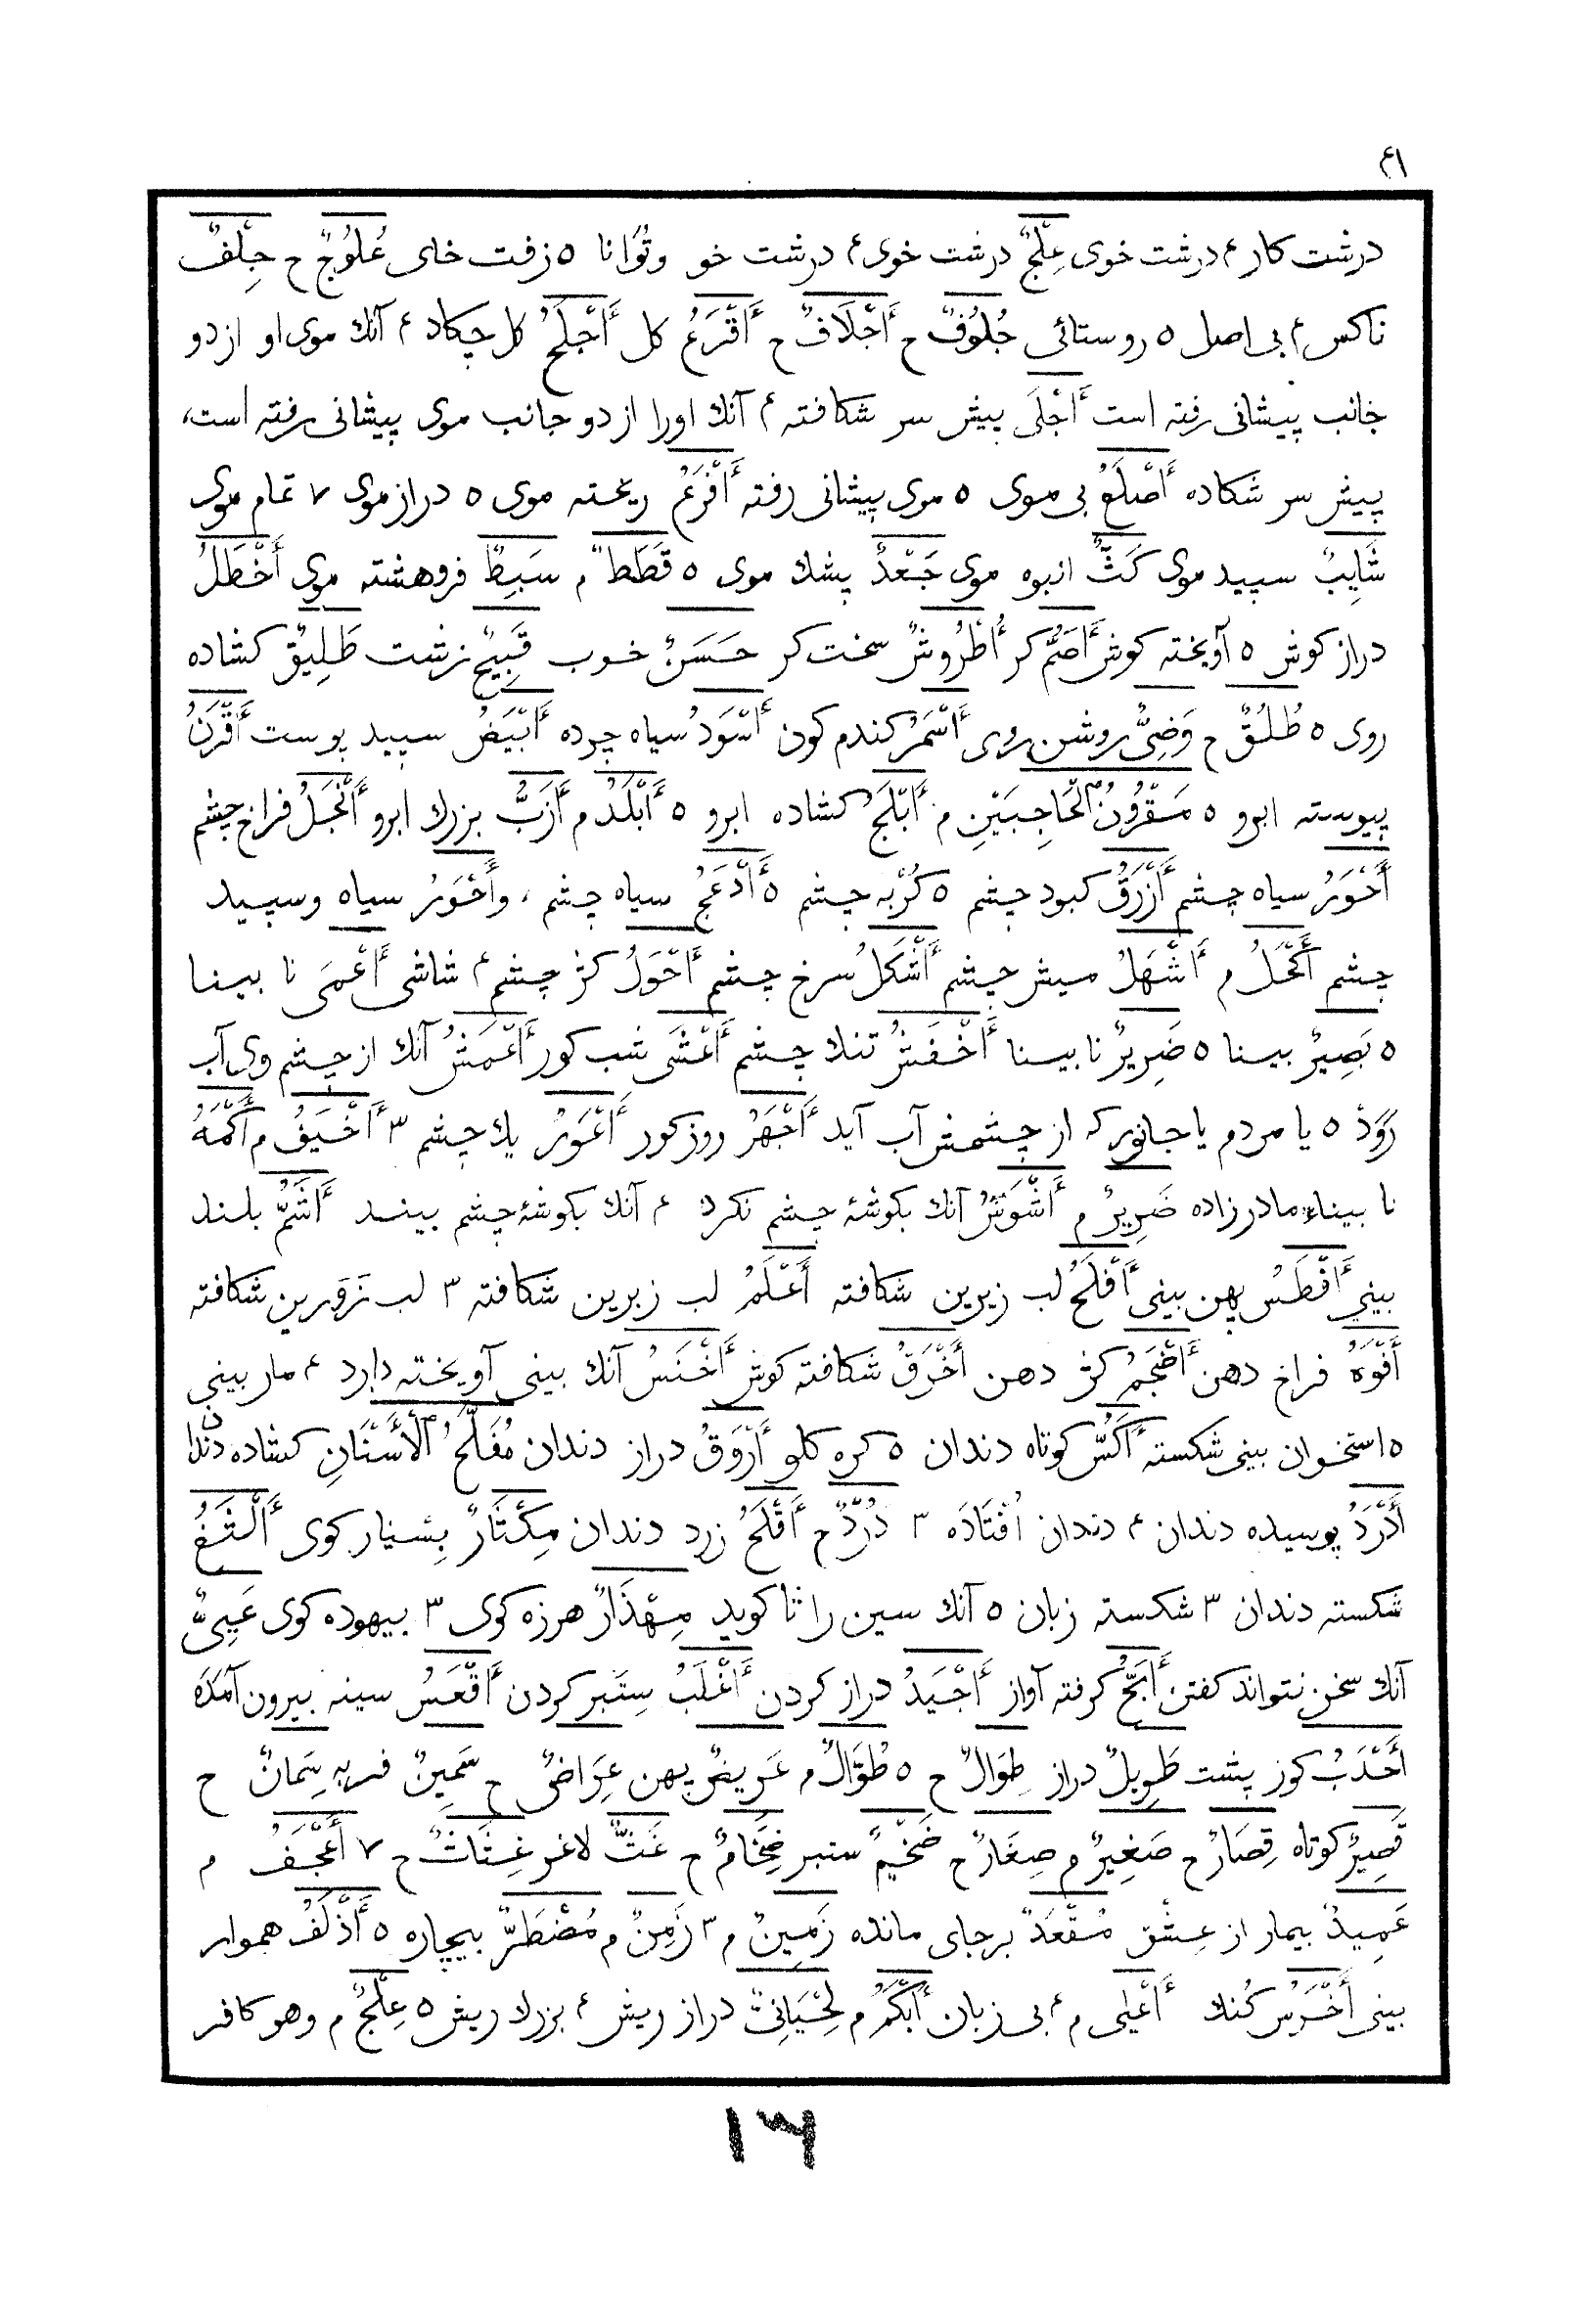 ۴۱
درشت کار ۴ درشت خوی عِلْجٌ درشت خوی ۴ درشت خو وتُوَانا ۵ زفت خای عُلُوُجٌ ح جِلْفٌ
ناکس ۴ بی اصل ۵ روستائی جُلُوُفٌ ح أَجْلَافٌ ح أَقْرَعُ کل أَجْلَحُ کل چکاد ۴ آنك موی او از دو
خانب پیشانی رفته است أَجْلَی پیش سر شکافته ۴ آنك اورا از دو جانب موی پیشانی رفته است،
پیش سر شکاده أَصْلَعُ بی موی ۵ موی پیشانی رفته أَفْرَعُ ریخته موی ۵ دراز موی ۷ تمام موی
شَایِبٌ سپید موی کَثٌّ انبوه موی جَعْدٌ پشك موی ۵ قَطَطٌ م سَبِطٌ فروهشته موی أَخْطَلُ
دراز کوش ۵ آویخته کوش أَصَمُّ کر أُطْرُوشٌ سخت کر حَسَنٌ خوب قَبِیحٌ زشت طَلِیقٌ کشاده
روی ۵ طُلُقٌ ح وَضِیُّ روشن روی أَسْمَرُ کندم کون أَسْوَدُ سیاه چرده أَبْیَضُ سپید پوست أَقْرَنُ
پیوسته ابرو ۵ مَقْرُونُ الْحَاجِبَیْنِ م أَبْلَجُ کشاده ابرو ۵ أَبْلَدُ م أَزَبُّ بزرك ابرو أَنْجَلُ فراخ چشم
أَحْوَرُ سیاه چشم أَزْرَقُ کبود چشم ۵ کُرْبه چشم ۵ أَدْعَجُ سیاه چشم ، وأَحْوَرُ سیاه وسپید
چشم أَکْحَلُ م أَشْهَلُ میش چشم أَشْکَلُ سرخ چشم أَحْوَلُ کژ چشم ۴ شاشی أَعْمَی نا بینا
۵ بَصِیرٌ بینا ۵ ضَرِیرٌ نا بینا أَخْفَشُ تنك چشم أَعْشَی شب کور أَعْمَشُ آنك از چشم وی آب
رَوَدْ ۵ یا مردم یا جانور که از چشمش آب آید أَجْهَرُ روز کور أَعْوَرُ یك چشم ۳ أَخْیَفُ م أَکْمَهُ
نا بیناء مادر زاده ضَرِیرٌ م أَشْوَسُ آنك بکوشهٔ چشم نکرد ۴ آنك بکوشهٔ چشم بیند أَشَمُّ بلند
بینی أَفْطَسُ پهن بینی أَفْلَحُ لب زیرین شکافته أَعْلَمُ لب زبرین شکافته ۳ لب زَوَرین شکافته
أَفْوَهُ فراخ دهن أَضْجَمُ کژ دهن أَخْرَقُ شکافته کوش أَخْنَسُ آنك بینی آویخته دارد ۴ مار بینی
۵ استخوان بینی شکسته أَکَسُّ کوتاه دندان ۵ کره کلو أَرْوَقُ دراز دندان مُفَلَّجُ الْأَسْنَانِ کشاده دندان
أَدْرَدُ پوسیده دندان ۴ دندان اُفْتَادَه ۳ دُرْدٌ ح أَقْلَحُ زرد دندان مِکْثَارٌ بِسْیار کوی أَلْثَغُ
شکسته دندان ۳ شکسته زبان ۵ آنك سین را ثا کوید مِهْذَارٌ هرزه کوی ۳ بیهوده کوی عَیِیٌّ
آنك سخن نتواند کفتن أَبَحُّ کرفته آواز أَجْیَدُ دراز کردن أَغْلَبُ سِتَبر کردن أَقْعَسُ سینه بیرون آمَدَه
أَحْدَبُ کوز پشت طَوِیلٌ دراز طِوَالٌ ح ۵ طُوَّالٌ م عَرِیضٌ پهن عِرَاضٌ ح سَمِینٌ فربه سِمَانٌ ح
قَصِیرٌ کوتاه قِصَارٌ ح صَغِیرٌ م صِغَارٌ ح ضَخْیمٌ ستبر ضِخَامٌ ح غَثٌّ لاغر غِثَاثٌ ح ۷ أَعْجَفُ م
عَمِیدٌ بیمار از عِشْق مُقْعَدٌ برجای مانده زَمِینٌ م ۳ زَمِنٌ م مُضْطَرٌّ بیچاره ۵ أَذْلَفُ هموار
بینی أَخْرَسُ کُنك أَعْلَی م ۴ بی زبان أَبْکَمُ م لِحْیَانِیٌّ دراز ریش ۴ بزرك ریش ۵ عِلْجٌ م وهو کافر